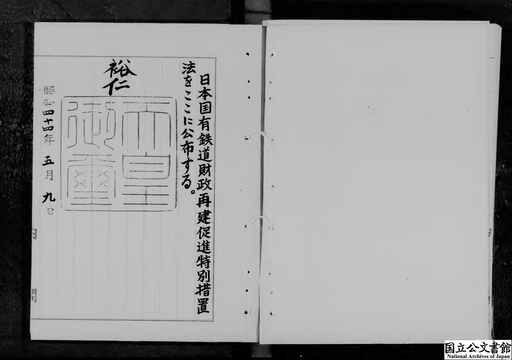 日本国有鉄道財政再建促進特別措置
法をここに公布する。
裕仁
天皇
御璽
昭和四十四年五月九日
内閣
国立公文書館
National Archives of Japan